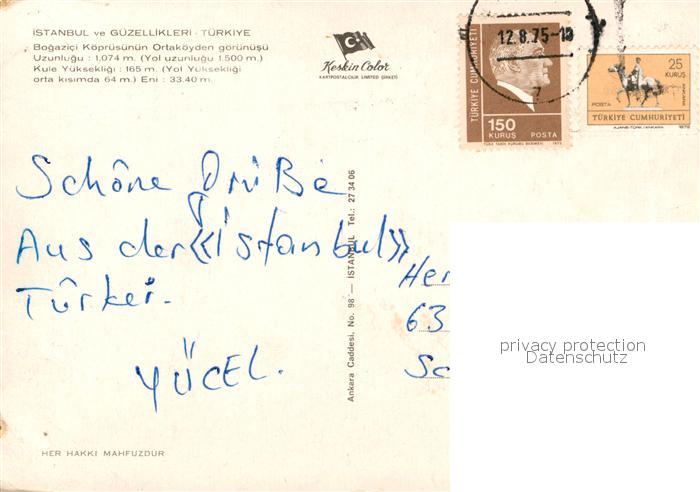 İSTANBUL ve GÜZELLİKLERİ - TÜRKİYE
Boğaziçi Köprüsünün Ortaköyden görünüşü
Uzunluğu : 1.074 m. (Yol uzunluğu 1.500 m.)
Kule Yüksekliği : 165 m. (Yol Yüksekliği
orta kısımda 64 m.) Eni : 33.40 m.
Keskin Color
KARTPOSTALCILIK LIMITED ŞİRKETİ
12.8.75-18
7
TÜRKİYE CUMHURİYETİ
150
KURUŞ POSTA
25
KURUŞ
POSTA
TÜRKİYE CUMHURİYETİ
AJANS-TÜRK/ANKARA
Schöne Grüße
Aus der «İstanbul»
Türkei.
YÜCEL.
Ankara Caddesi, No. 98 — İSTANBUL Tel.: 27 34 06
Her
63
Sc
privacy protection
Datenschutz
HER HAKKI MAHFUZDUR